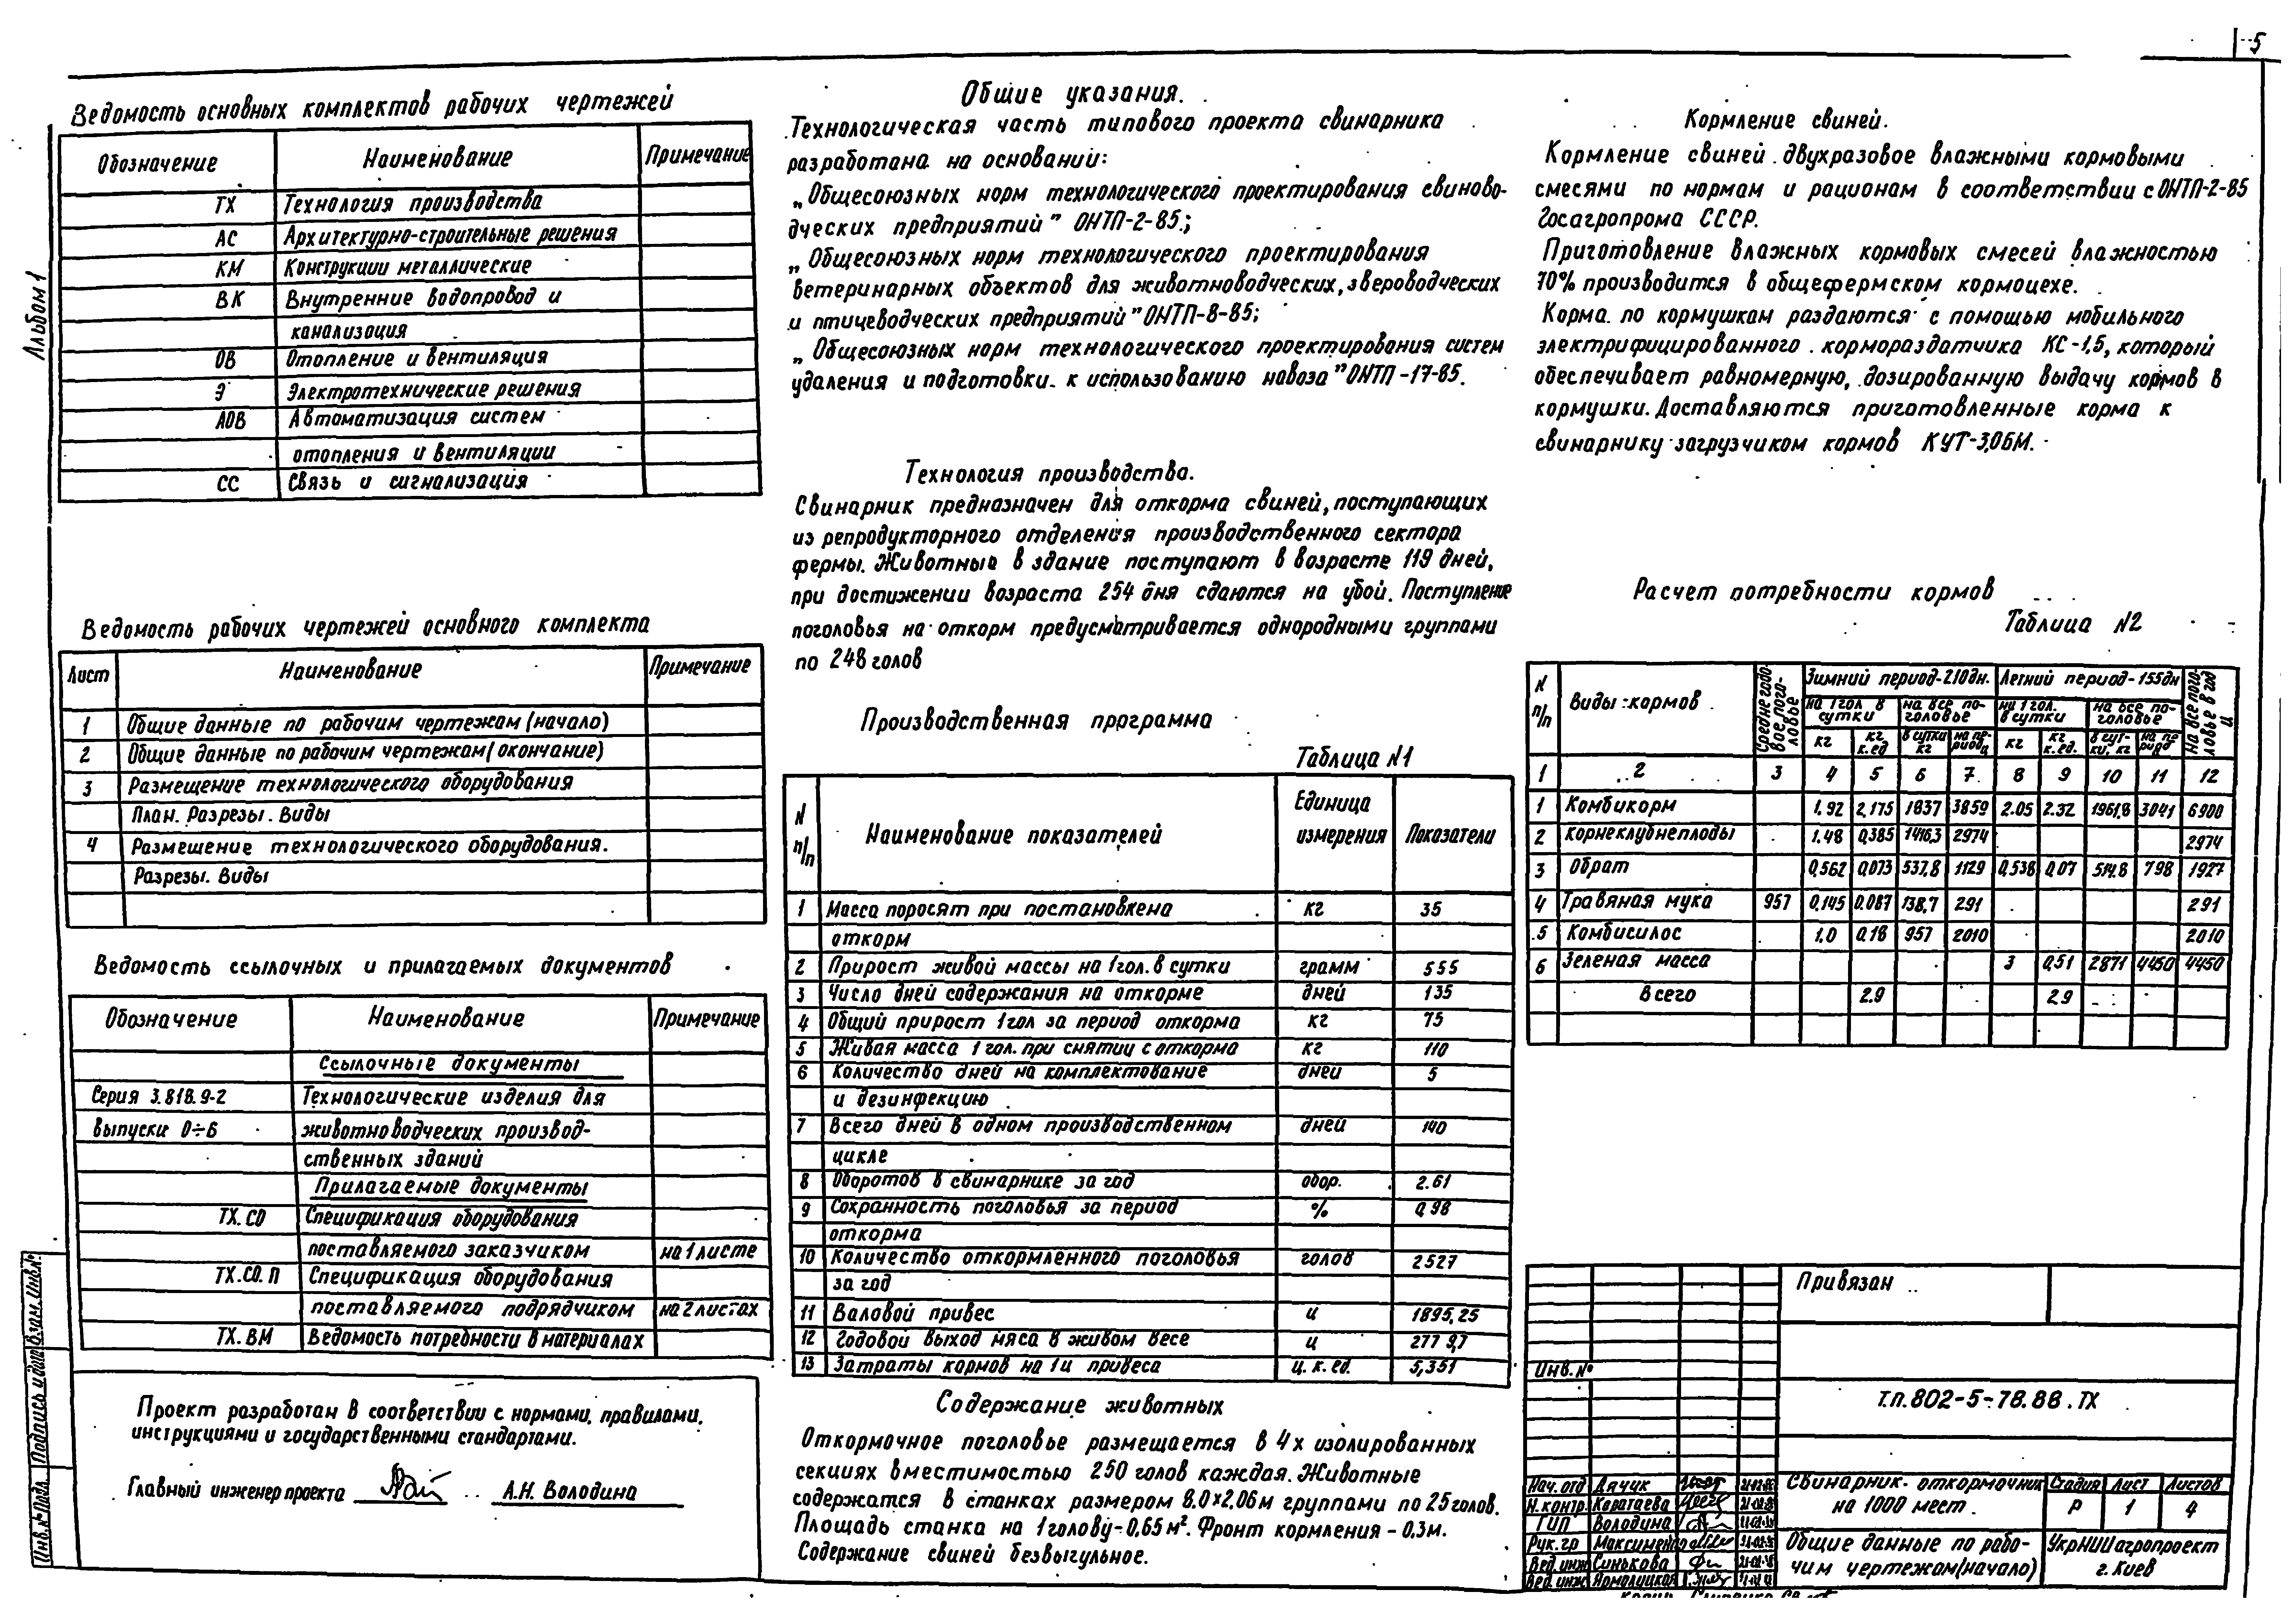 5
Альбом 1
Ведомость основных комплектов рабочих чертежей
Обозначение Наименование Примечание
ТХ Технология производства
АС Архитектурно-строительные решения
КМ Конструкции металлические
ВК Внутренние водопровод и
канализация
ОВ Отопление и вентиляция
Э Электротехнические решения
АОВ Автоматизация систем
отопления и вентиляции
СС Связь и сигнализация
Ведомость рабочих чертежей основного комплекта
Лист Наименование Примечание
1 Общие данные по рабочим чертежам (начало)
2 Общие данные по рабочим чертежам (окончание)
3 Размещение технологического оборудования
План. Разрезы. Виды
4 Размещение технологического оборудования.
Разрезы. Виды
Ведомость ссылочных и прилагаемых документов
Обозначение Наименование Примечание
Ссылочные документы
Серия 3.818.9-2 Технологические изделия для
выпуски 0÷6 животноводческих производ-
ственных зданий
Прилагаемые документы
ТХ.СО Спецификация оборудования
поставляемого заказчиком на 1 листе
ТХ.СО.П Спецификация оборудования
поставляемого подрядчиком на 2 листах
ТХ.ВМ Ведомость потребности в материалах
Проект разработан в соответствии с нормами, правилами,
инструкциями и государственными стандартами.
Главный инженер проекта А.Н. Володина
Инв.№ подл. Подпись и дата Взам. инв.№
Общие указания.
Технологическая часть типового проекта свинарника
разработана на основании:
„Общесоюзных норм технологического проектирования свиново-
дческих предприятий" ОНТП-2-85.;
„Общесоюзных норм технологического проектирования
ветеринарных объектов для животноводческих, звероводческих
и птицеводческих предприятий" ОНТП-8-85;
„Общесоюзных норм технологического проектирования систем
удаления и подготовки к использованию навоза" ОНТП-17-85.
Технология производства.
Свинарник предназначен для откорма свиней, поступающих
из репродукторного отделения производственного сектора
фермы. Животные в здание поступают в возрасте 119 дней,
при достижении возраста 254 дня сдаются на убой. Поступление
поголовья на откорм предусматривается однородными группами
по 248 голов
Производственная программа
Таблица N1
N п/п Наименование показателей Единица измерения Показатели
1 Масса поросят при постановке на кг 35
откорм
2 Прирост живой массы на 1 гол. в сутки грамм 555
3 Число дней содержания на откорме дней 135
4 Общий прирост 1 гол за период откорма кг 75
5 Живая масса 1 гол. при снятии с откорма кг 110
6 Количество дней на комплектование дней 5
и дезинфекцию
7 Всего дней в одном производственном дней 140
цикле
8 Оборотов в свинарнике за год обор. 2.61
9 Сохранность поголовья за период % 0,98
откорма
10 Количество откормленного поголовья голов 2527
за год
11 Валовой привес ц 1895,25
12 Годовой выход мяса в живом весе ц 2779,7
13 Затраты кормов на 1 ц привеса ц. к. ед. 5,351
Содержание животных
Откормочное поголовье размещается в 4х изолированных
секциях вместимостью 250 голов каждая. Животные
содержатся в станках размером 8.0×2.06 м группами по 25 голов.
Площадь станка на 1 голову - 0,65 м². Фронт кормления - 0,3 м.
Содержание свиней безвыгульное.
Кормление свиней.
Кормление свиней двухразовое влажными кормовыми
смесями по нормам и рационам в соответствии с ОНТП-2-85
Госагропрома СССР.
Приготовление влажных кормовых смесей влажностью
70% производится в общефермском кормоцехе.
Корма по кормушкам раздаются с помощью мобильного
электрифицированного кормораздатчика КС-1,5, который
обеспечивает равномерную, дозированную выдачу кормов в
кормушки. Доставляются приготовленные корма к
свинарнику загрузчиком кормов КУТ-3,0БМ.
Расчет потребности кормов
Таблица N2
N п/п Виды кормов Среднегодовое поголовье Зимний период-210дн. Летний период-155дн На все поголовье в год ц
на 1 гол в сутки на все поголовье на 1 гол. в сутки на все поголовье
кг кг к.ед в сутки кг на период ц кг кг к.ед. в сутки, кг на период
1 2 3 4 5 6 7 8 9 10 11 12
1 Комбикорм 1.92 2,175 1837 3859 2.05 2.32 1961,8 3041 6900
2 Корнеклубнеплоды 1.48 0,385 1416,3 2974 2974
3 Обрат 0,562 0,073 537,8 1129 0,538 0,07 514.8 798 1927
4 Травяная мука 957 0,145 0.087 138,7 291 291
5 Комбисилос 1.0 0,18 957 2010 2010
6 Зеленая масса 3 0,51 2871 4450 4450
Всего 2.9 2.9
Привязан
Инв.№
Т.П. 802-5-78.88.ТХ
Нач. отд Дячук
Н.контр. Каратаева
ГИП Володина
Рук.гр Максименко
Вед.инж Синькова
Вед.инж Ярмолицкая
Свинарник-откормочник
на 1000 мест.
Стадия Лист Листов
Р 1 4
Общие данные по рабо-
чим чертежам (начало)
УкрНИИагропроект
г. Киев